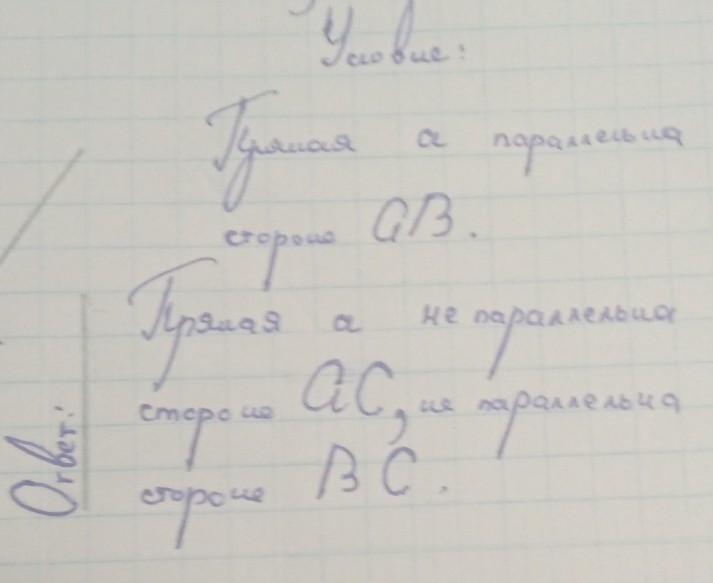 Условие:
Прямая а параллельна
стороне АВ.
Прямая а не параллельна
стороне АС, не параллельна
стороне ВС.
Ответ: